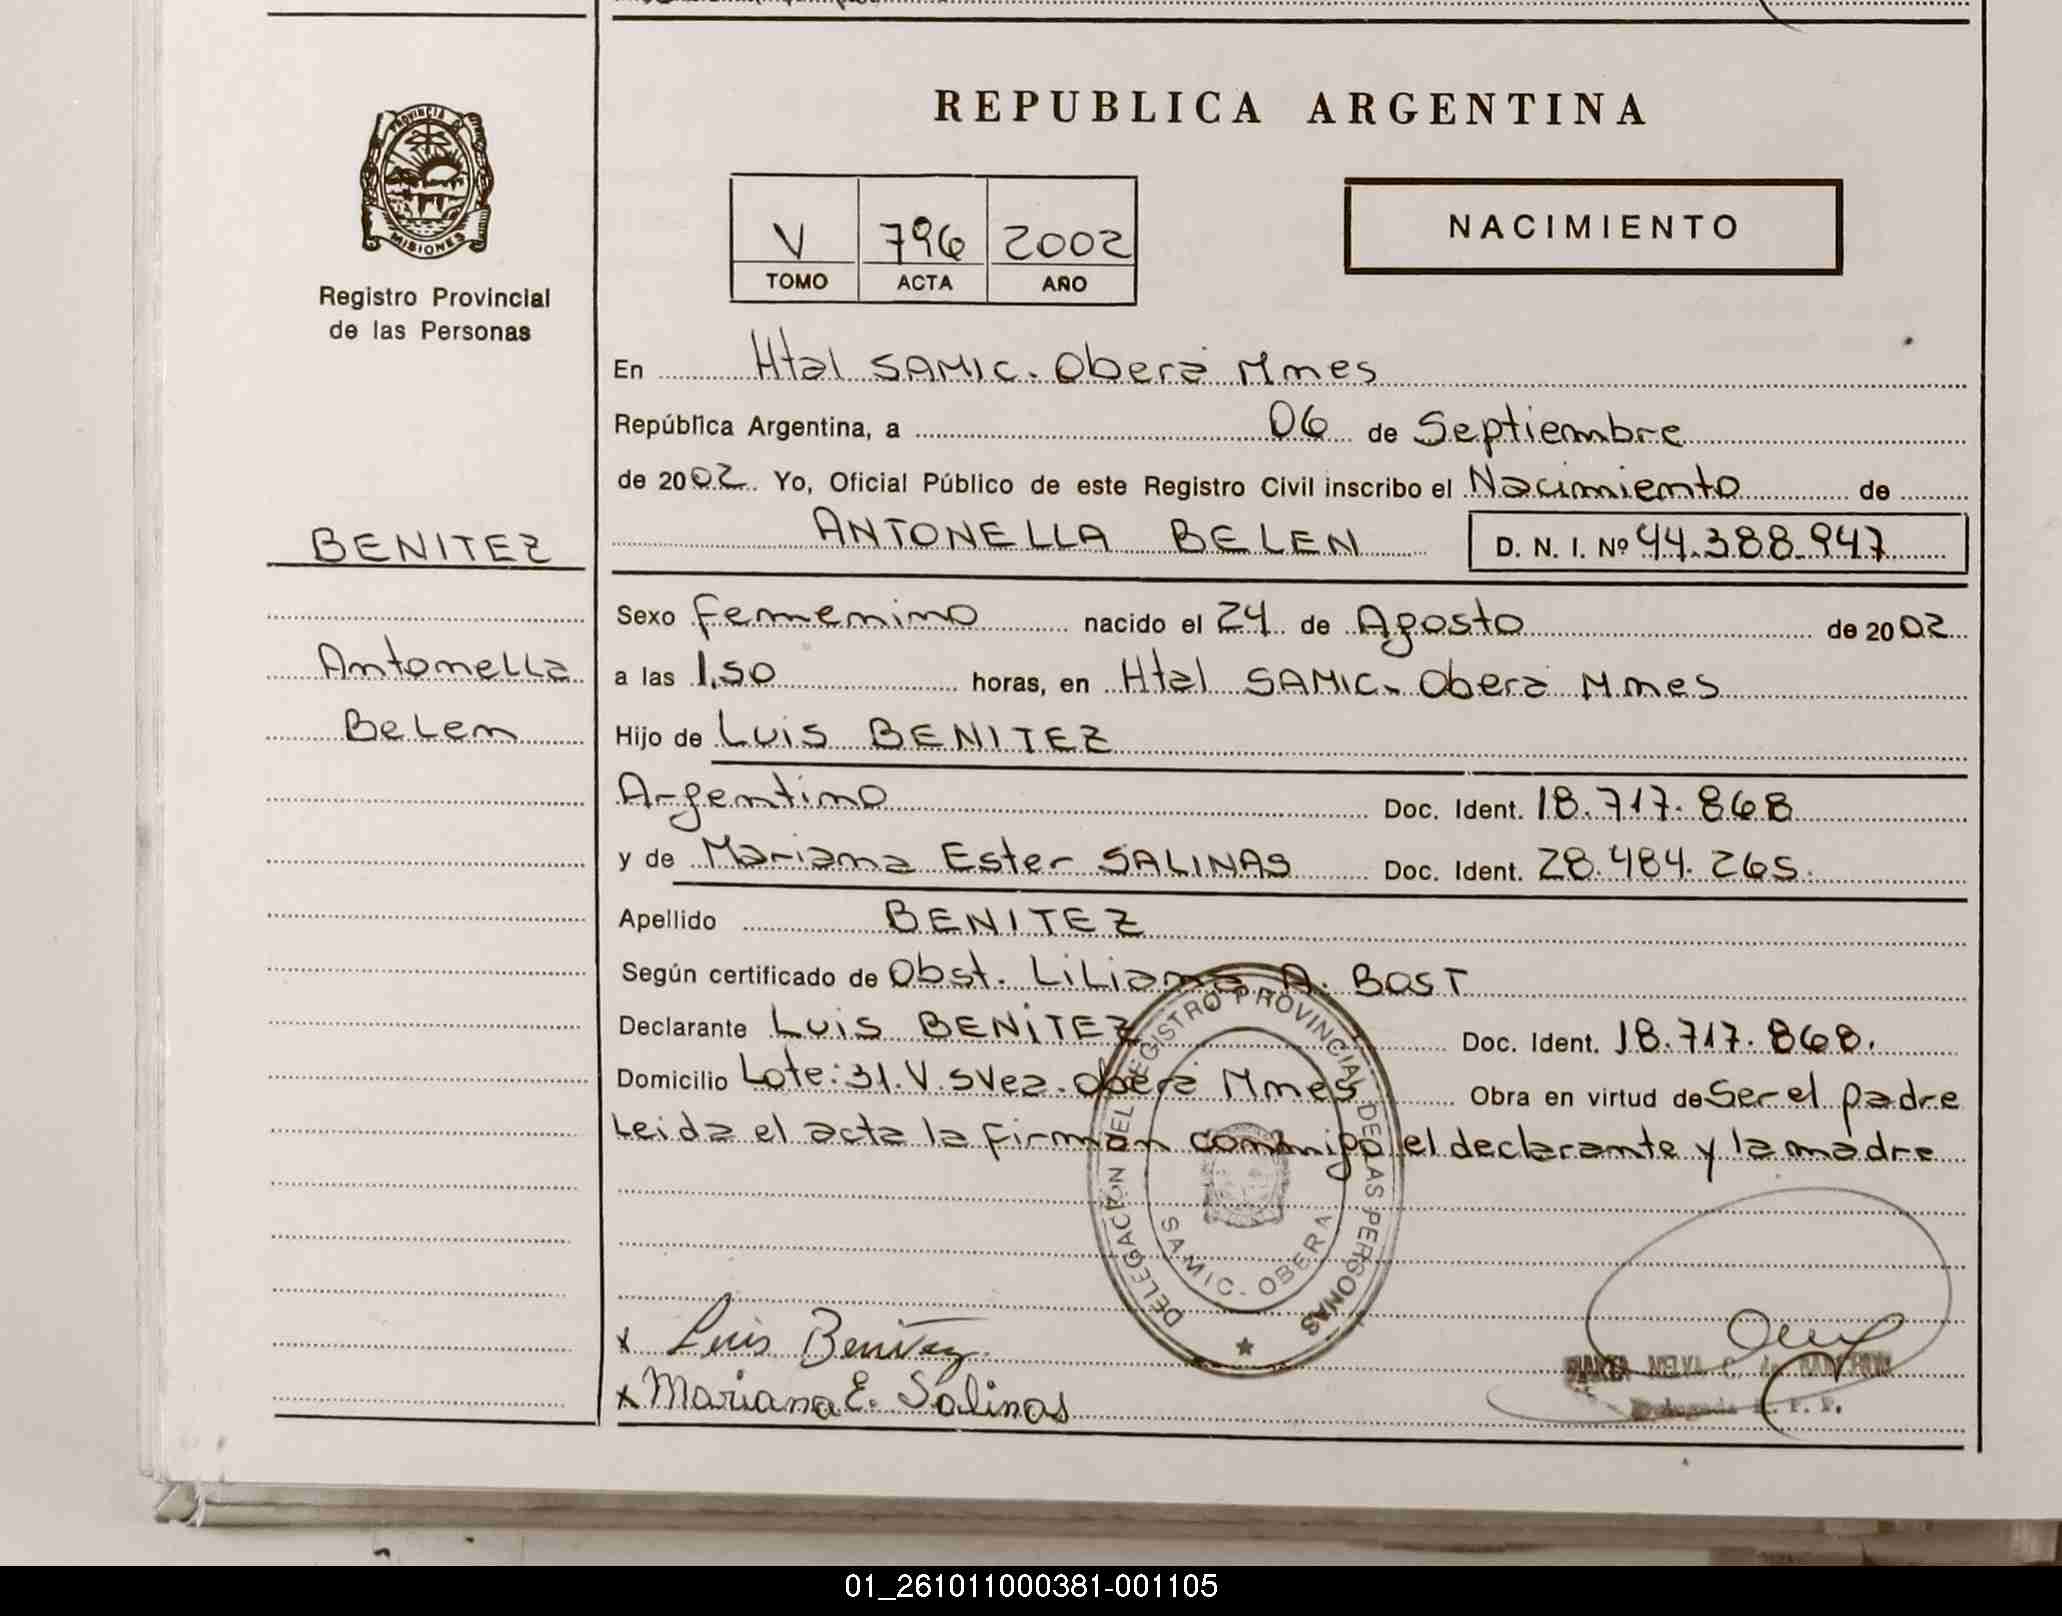 REPUBLICA ARGENTINA
PROVINCIA DE
MISIONES
Registro Provincial
de las Personas
V 796 2002
TOMO ACTA AÑO
NACIMIENTO
En Htal SAMIC. Oberá Mnes
República Argentina, a 06 de Septiembre
de 2002. Yo, Oficial Público de este Registro Civil inscribo el Nacimiento de
BENITEZ
ANTONELLA BELEN D. N. I. Nº 44.388.947
Sexo femenino nacido el 24 de Agosto de 2002
Antonella
a las 1,50 horas, en Htal SAMIC. Oberá Mnes
Belen
Hijo de Luis BENITEZ
Argentino Doc. Ident. 18.717.868
y de Mariana Ester SALINAS Doc. Ident. 28.484.265.
Apellido BENITEZ
Según certificado de Obst. Liliana A. BOST
Declarante Luis BENITEZ Doc. Ident. 18.717.868.
Domicilio Lote: 31. V. Svea. Oberá Mnes Obra en virtud de Ser el padre
Leida el acta la firman conmigo el declarante y la madre
DELEGACIÓN DEL REGISTRO PROVINCIAL DE LAS PERSONAS
SAMIC. OBERA
x Luis Benitez
x Mariana E. Salinas
01_261011000381-001105